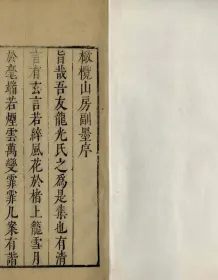 橄欖山房副墨序
旨哉吾友龍光氏之為是集也有清
言有玄言若綷風花於楮上籠雪月
於毫端若煙雲萬變霏霏几案有諧